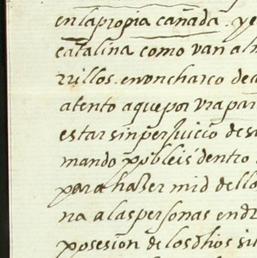 en la propia cañada. ye
catalina como van al n
rrillos. en on charco de c
atento a que por vra par
estar sin perjuicio de s
mando p obleis dentro
para haber mid dello
na a las personas en dr
posesion de los dhos si